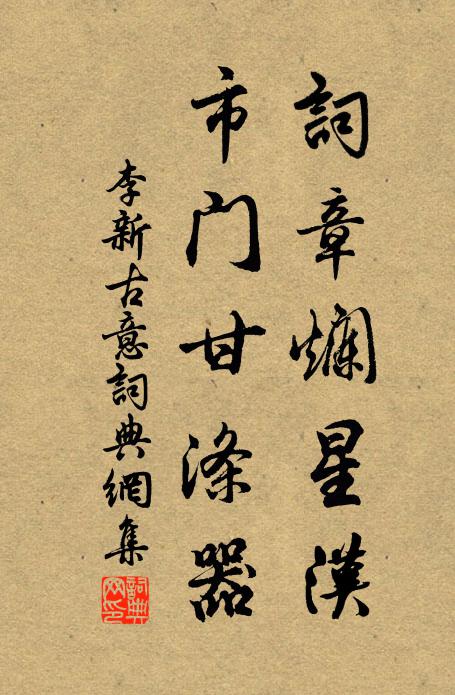 詞章爛星漢
市门甘滌器
李新古意詞典網集
詞典网印